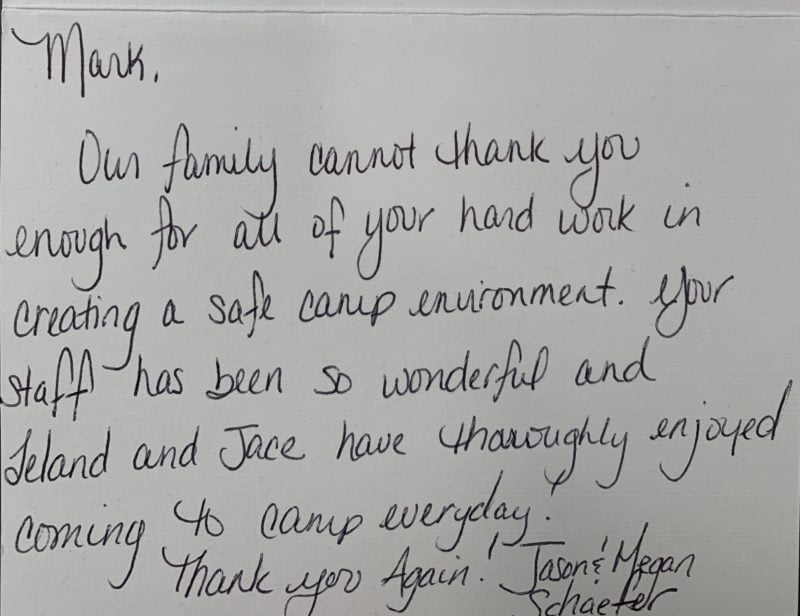 Mark,
Our family cannot thank you
enough for all of your hard work in
creating a safe camp environment. Your
staff has been so wonderful and
Leland and Jace have thoroughly enjoyed
coming to camp everyday!
Thank you Again! Jason & Megan
Schaefer